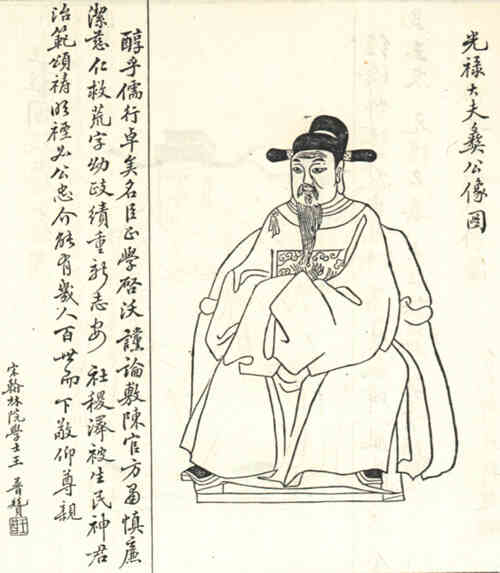 光禄大夫彝公像圖
醇乎儒行卓矣名臣正學啓沃讜論敷陳官方留慎廉
潔慈仁救荒字幼政績重新志安社稷澤被生民神君
治範頌禱明禋如公忠介能有幾人百世而下敬仰尊親
宋翰林院學士王 贊